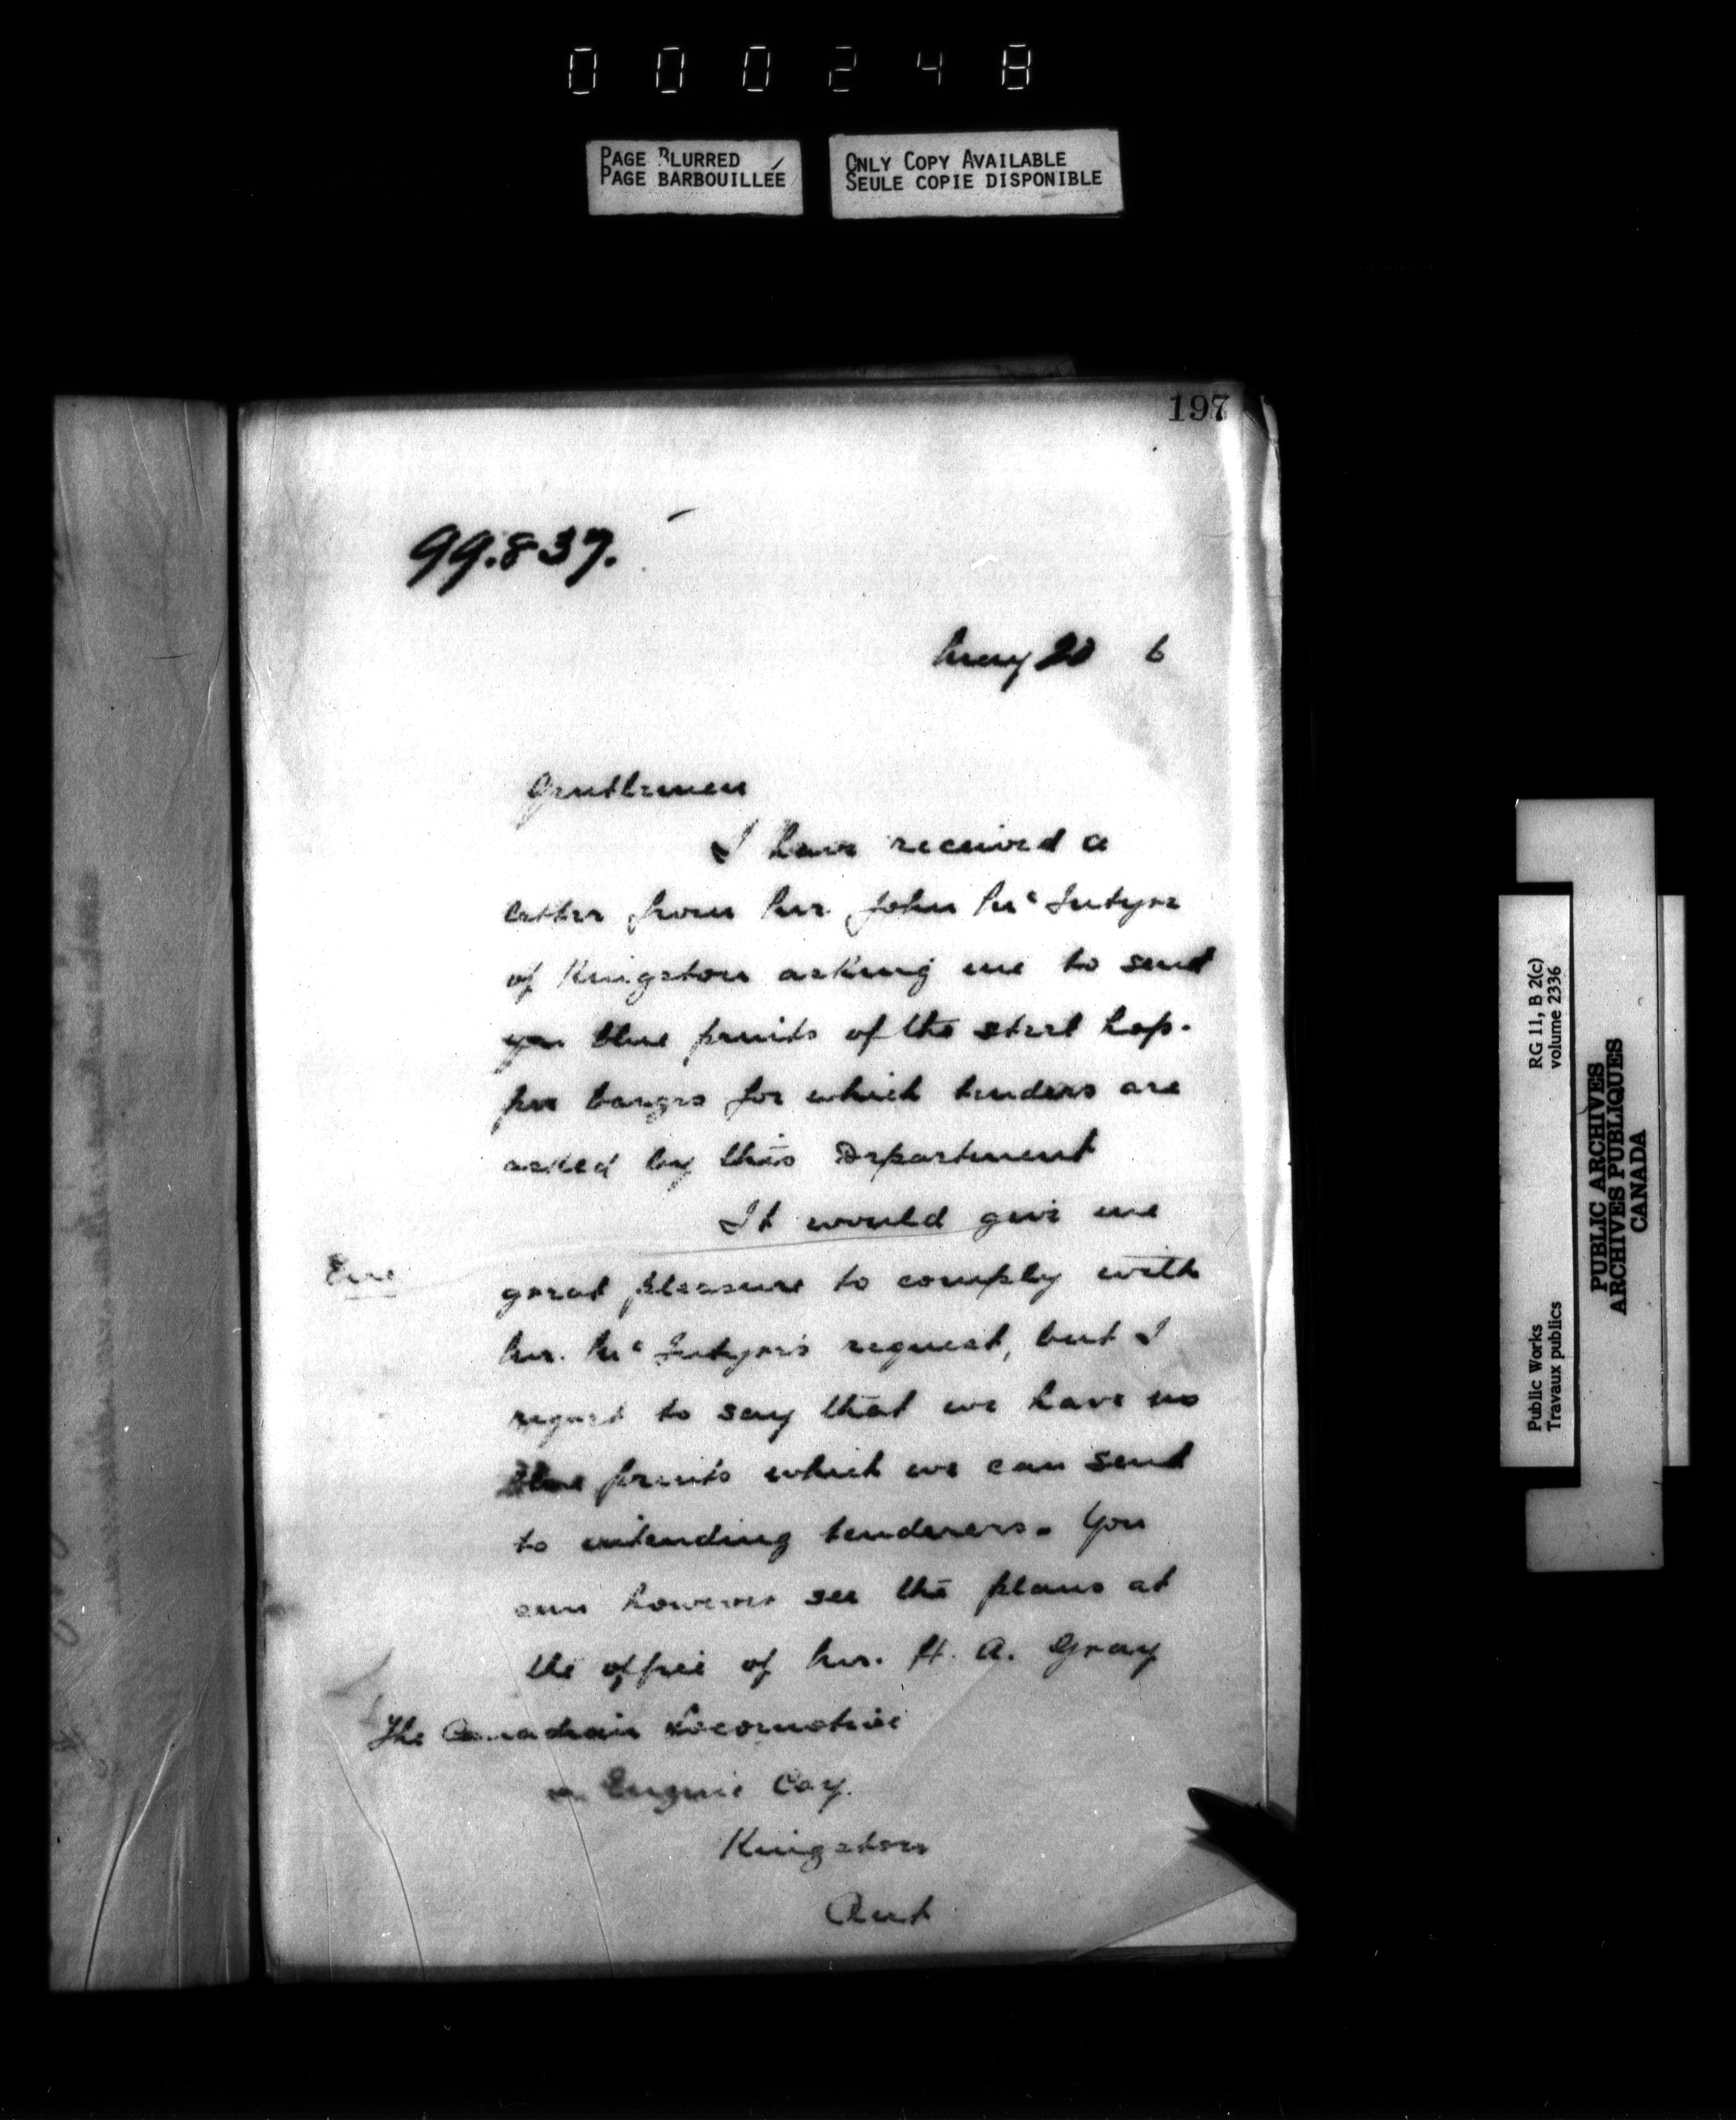 000248
PAGE BLURRED
PAGE BARBOUILLÉE
ONLY COPY AVAILABLE
SEULE COPIE DISPONIBLE
197
99.837.
May 20 6
Gentlemen
I have received a
letter from Mr. John Mc Intyre
of Kingston asking me to send
you blue prints of the steel hop-
per barges for which tenders are
asked by this Department
It would give me
great pleasure to comply with
Mr. Mc Intyre's request, but I
regret to say that we have no
blue prints which we can send
to intending tenderers. You
can however see the plans at
the office of Mr. H. A. Gray
The Canadian Locomotive
Engine Coy.
Kingston
Ont
RG 11, B 2(c)
volume 2336
Public Works
Travaux publics
PUBLIC ARCHIVES
ARCHIVES PUBLIQUES
CANADA